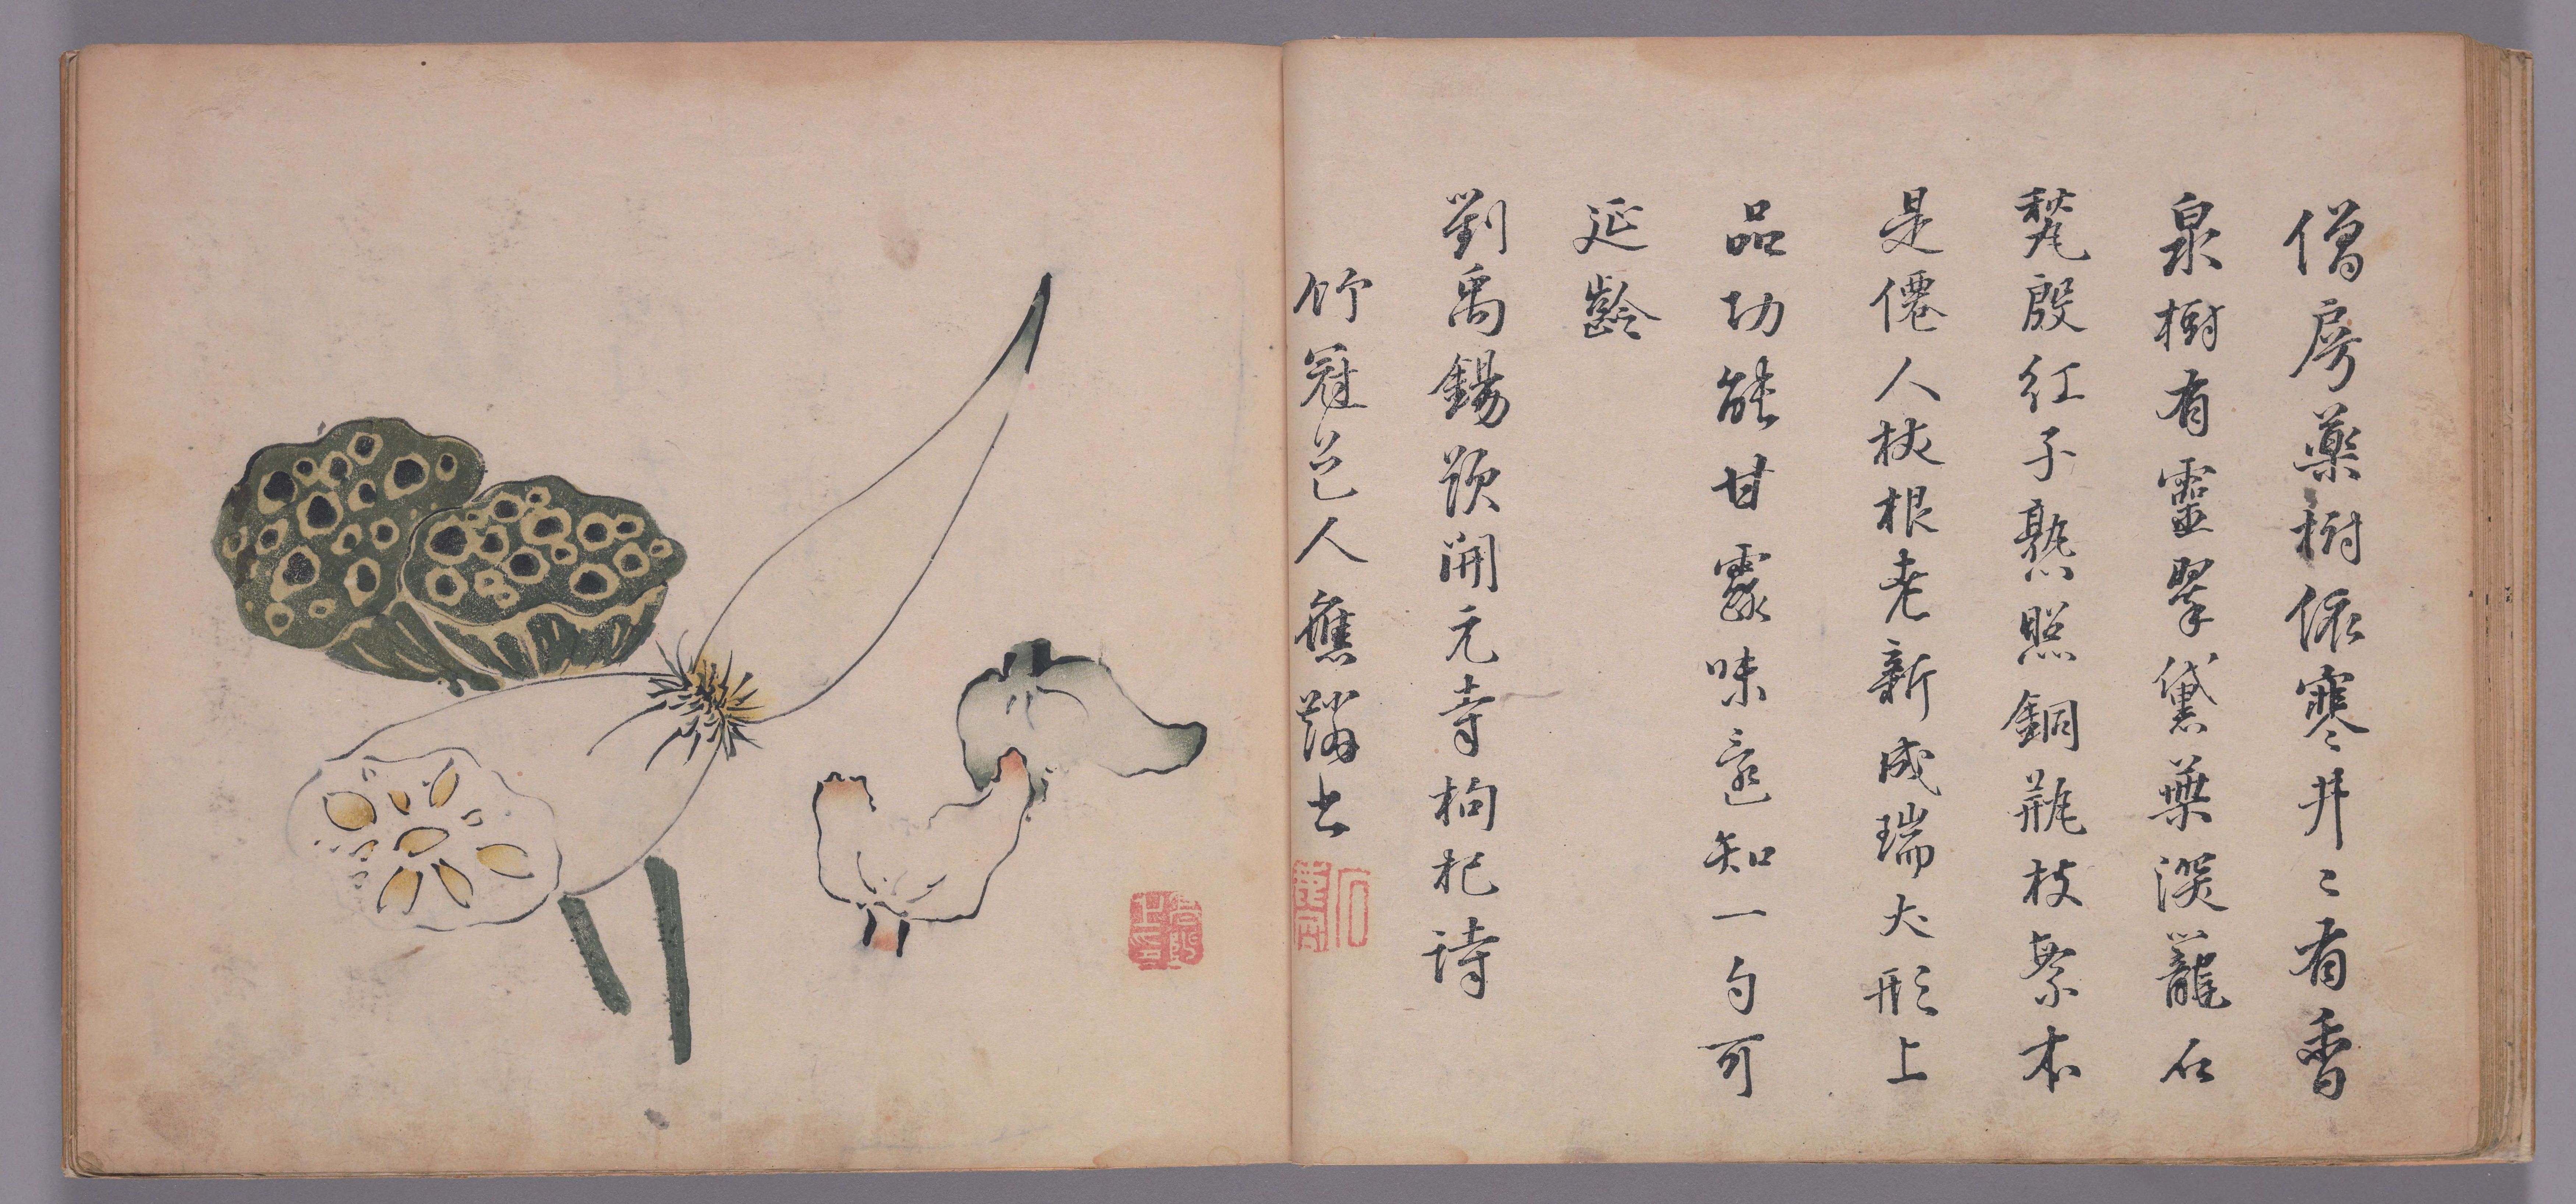 僧房藥樹依寒井〻有香
泉樹有靈翠黛葉深籠石
甃殷紅子熟照銅瓶枝繁本
是僊人杖根老新成瑞犬形上
品功能甘露味還知一勺可
延齡
劉禹錫題開元寺枸杞詩
竹冠人書